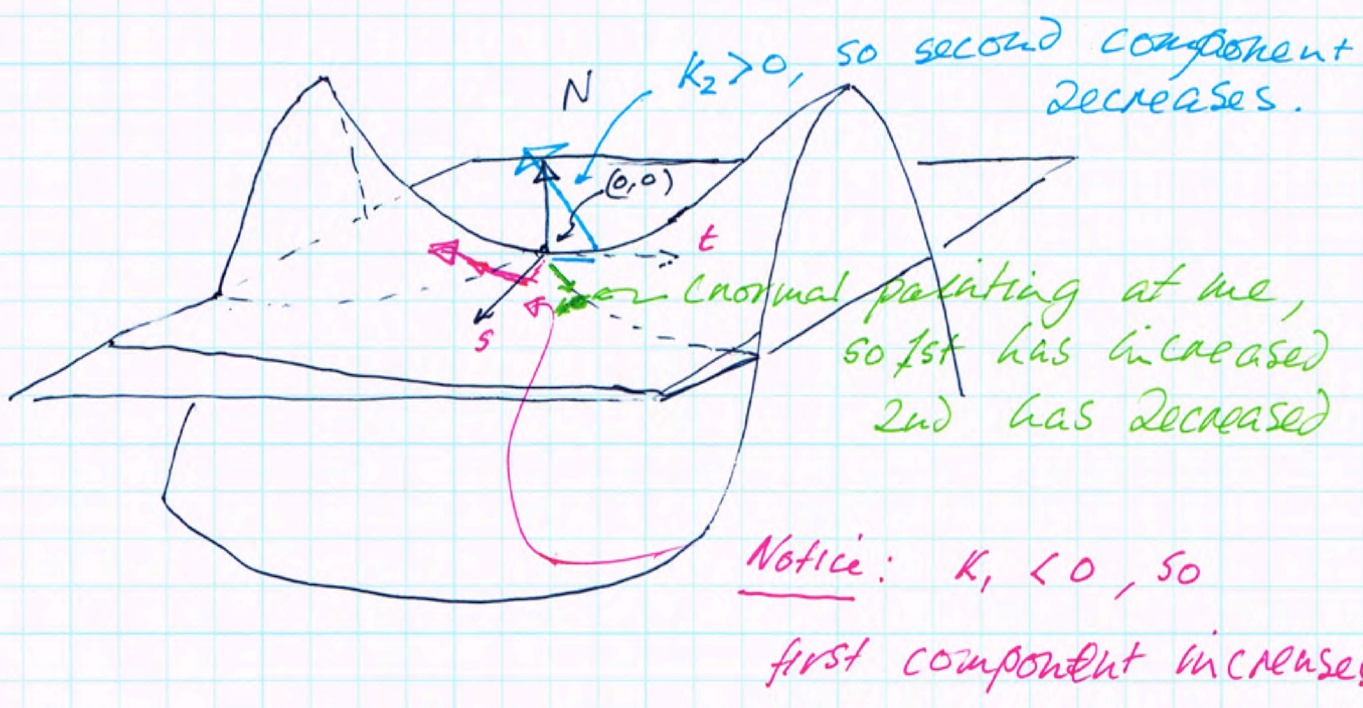 K₂ > 0, so second component
decreases.
N
(0,0)
t
s
(normal pointing at me,
so 1st has increased
2nd has decreased
Notice: K₁ < 0, so
first component increases